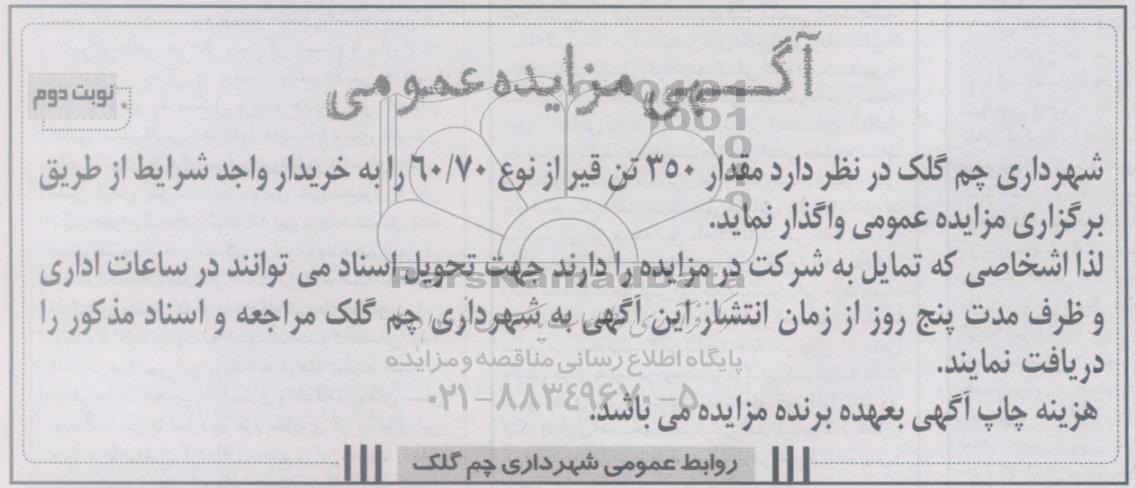 آگهی مزایده عمومی
نوبت دوم
شهرداری چم گلک در نظر دارد مقدار ۳۵۰ تن قیر از نوع ۶۰/۷۰ را به خریدار واحد شرایط از طریق
برگزاری مزایده عمومی واگذار نماید.
لذا اشخاصی که تمایل به شرکت در مزایده را دارند جهت تحویل اسناد می توانند در ساعات اداری
و ظرف مدت پنج روز از زمان انتشار این آگهی به شهرداری چم گلک مراجعه و اسناد مذکور را
دریافت نمایند.
هزینه چاپ آگهی بعهده برنده مزایده می باشد.
روابط عمومی شهرداری چم گلک
ParsNamadData
پایگاه اطلاع رسانی مناقصه و مزایده
۰۲۱-۸۸۳۴۹۶۷۰-۵